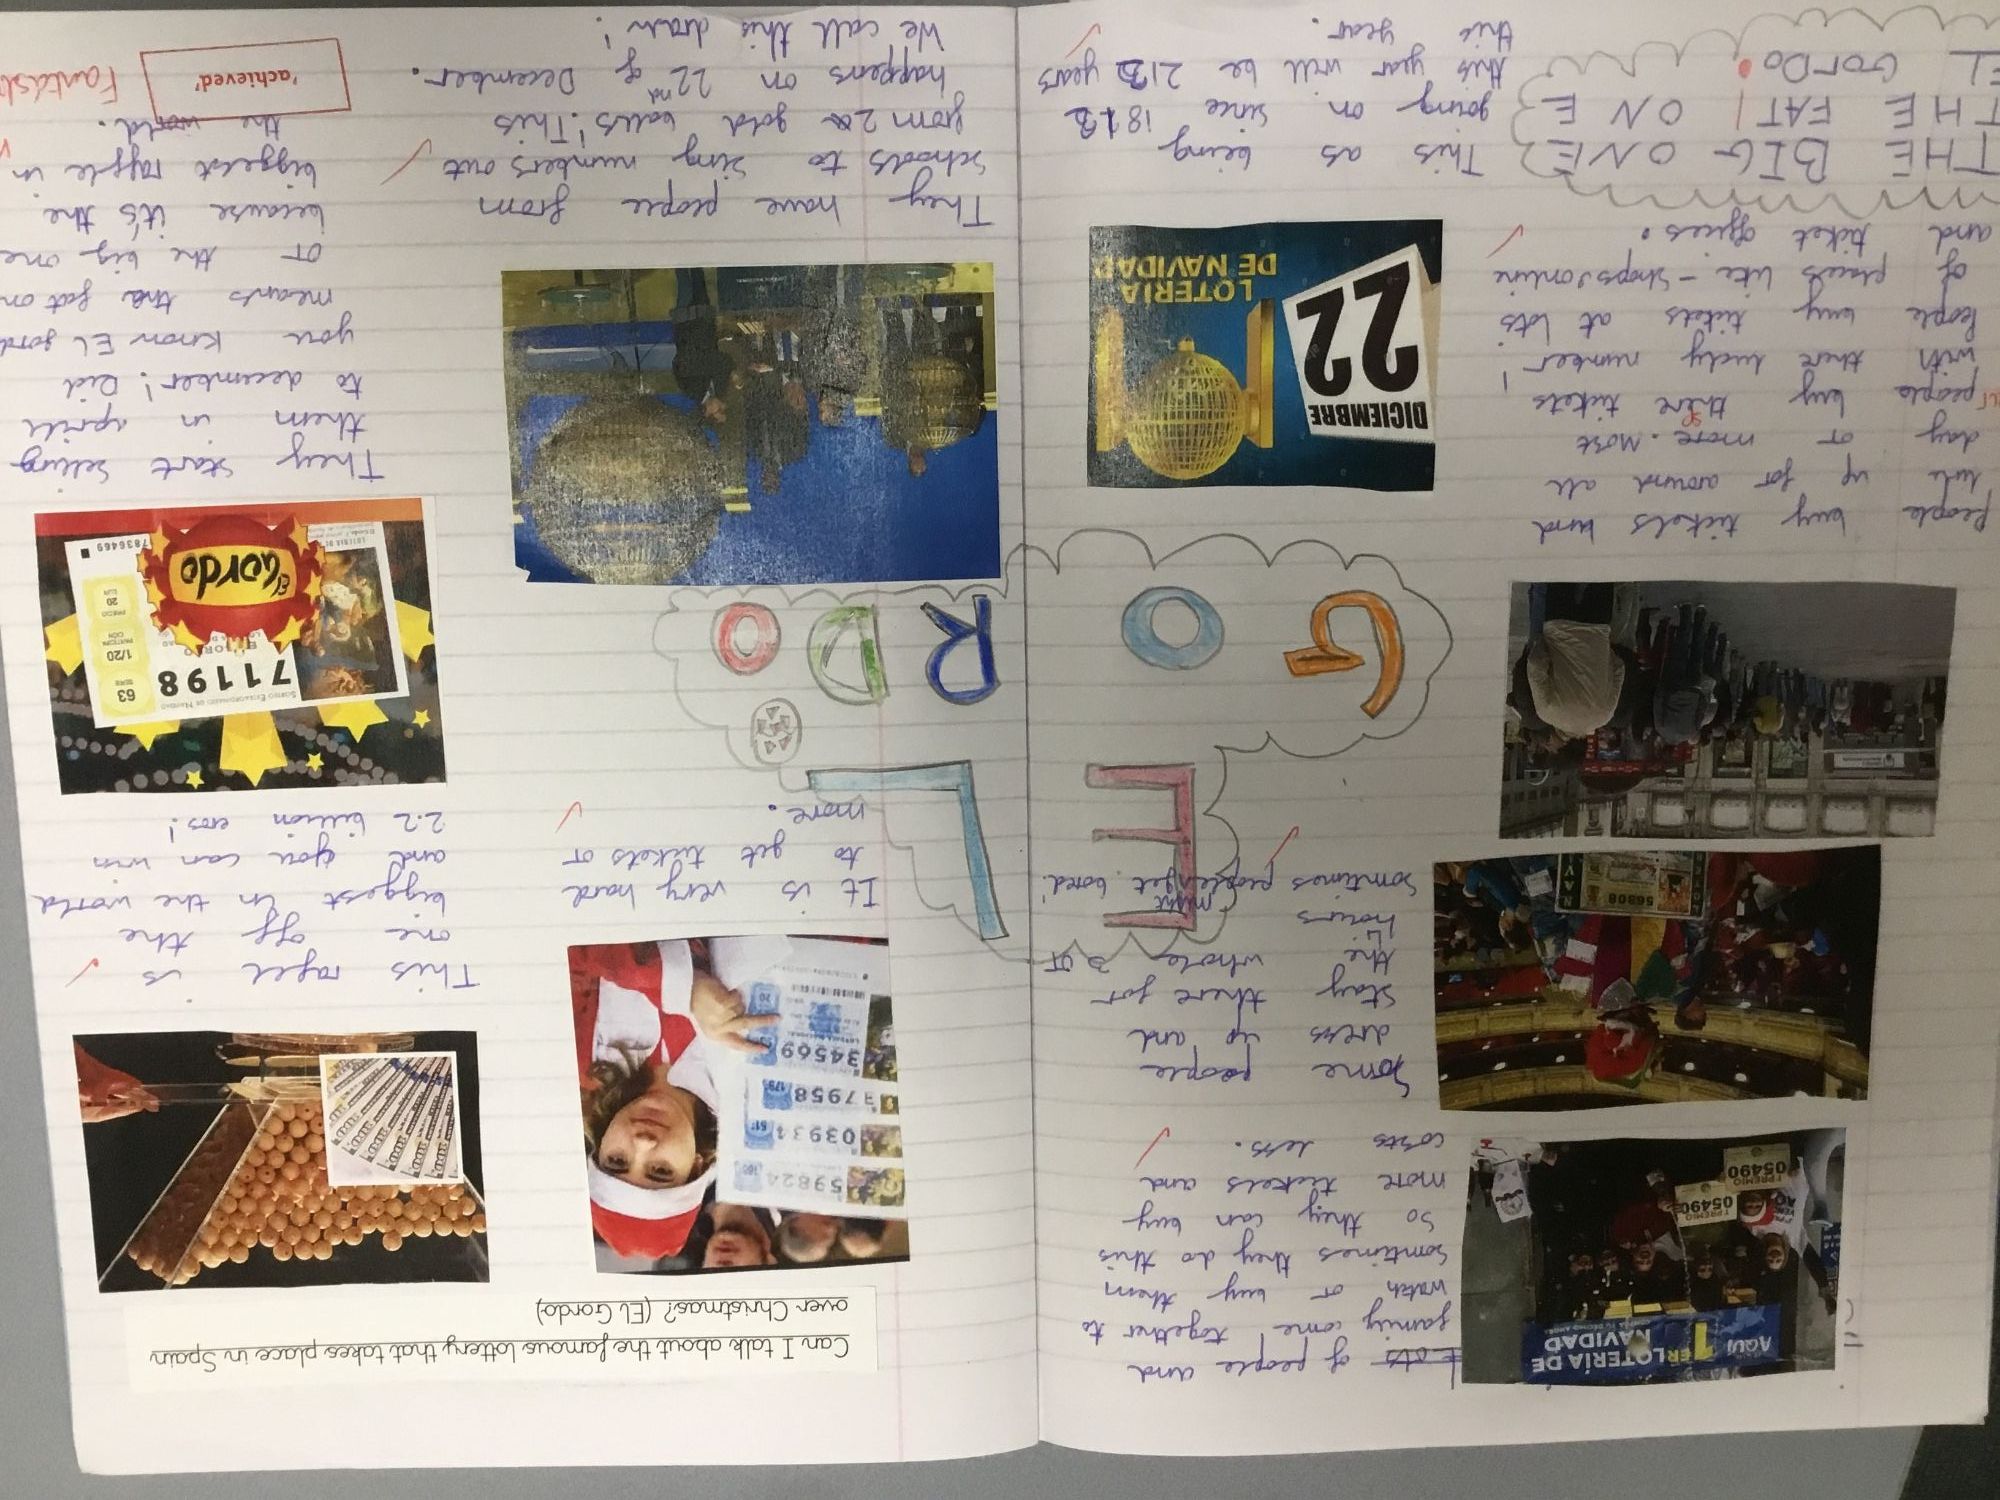 AQUÍ 1ER
LOTERÍA DE
NAVIDAD
05490
05490
Lots of people and
family come together to
watch or buy them
Sometimes they do this
so they can buy
more tickets and
costs less.
56808
Some people
dress up and
stay there for
the whole 3 or
4 hours
Sometimes people might get bored!
EL
GORDO
People buy tickets and
up for around all
day or more. Most
people buy there tickets
sp
with there lucky number!
People buy tickets at lots
of places like - shops/online
and ticket offices.
DICIEMBRE
22
LOTERIA
DE NAVIDAD
THE BIG ONE
THE FAT ONE
EL GORDO!
This as being
going on since
this year will be years
this year.
Can I talk about the famous lottery that takes place in Spain
over Christmas? (El Gordo)
59824
03934
37958
34569
It is very hard
to get tickets or
more.
This raffel is
one off the
biggest in the world
and you can win
2.2 billion eros!
SORTEO EXTRAORDINARIO DE NAVIDAD
71198
SERIE
63
1/20
PARTICIPACIÓN
20
PRECIO
EUR
El Gordo
7836469
They have people from
schools to sing numbers out
from gold balls! This
happens on 22nd of December.
We call this draw!
They start selling
them in aprill
to december! Did
you know EL gord
means the fat on
or the big one
because it's the
biggest raffle in
the world.
'achieved'
Fantast